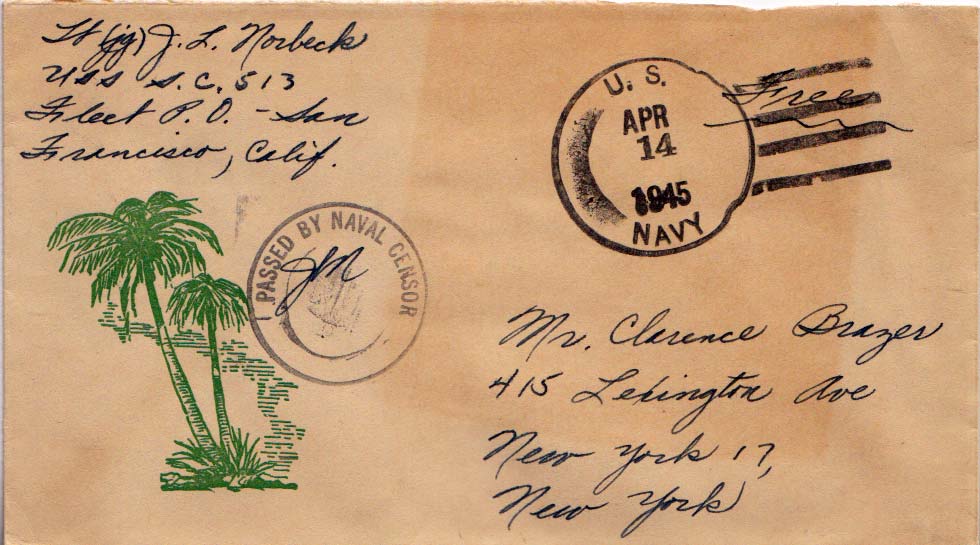 Lt (jg) J. L. Norbeck
USS S.C. 513
Fleet P.O. - San
Francisco, Calif.
U. S.
APR
14
1945
NAVY
Free
PASSED BY NAVAL CENSOR
JLN
Mr. Clarence Brazer
415 Lexington Ave
New York 17,
New York